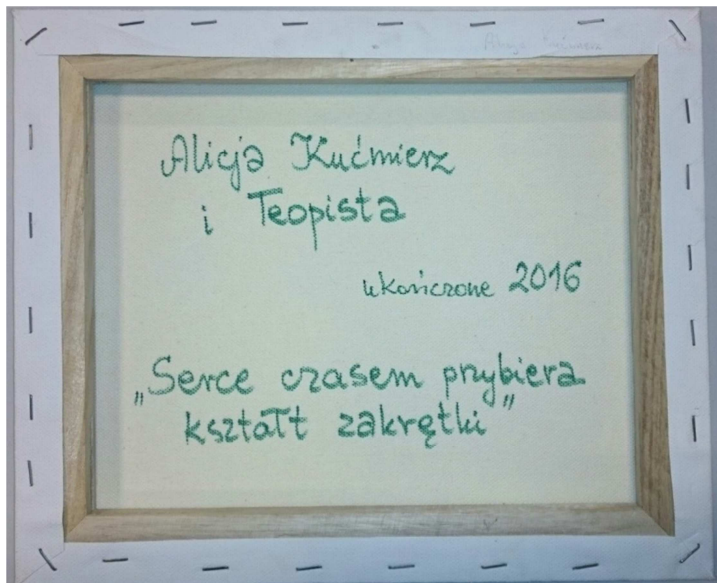 Alicja Kućmierz
i Teopista
ukończone 2016
„Serce czasem przybiera
kształt zakrętki”